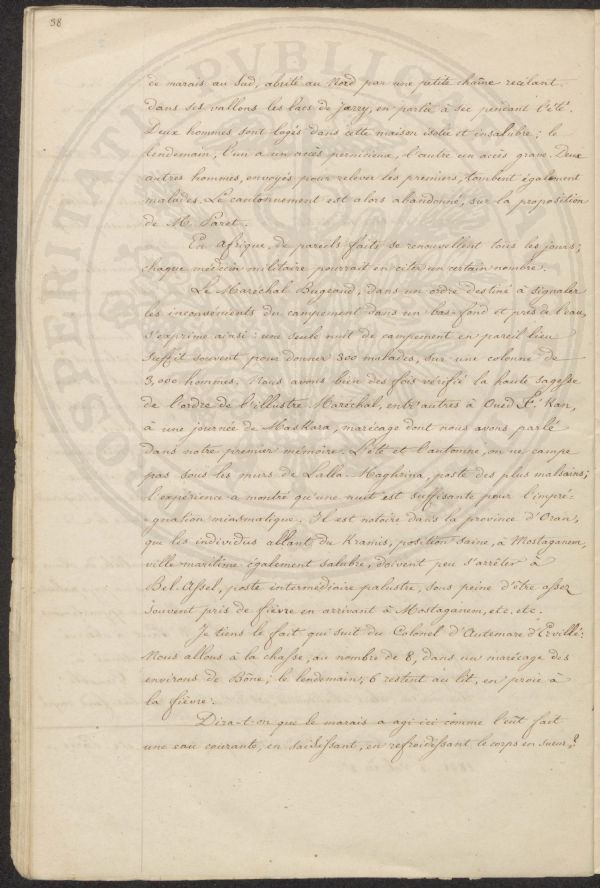 38
de marais au Sud, abrité au Nord par une petite chaîne recélant
dans ses vallons les lacs de Jarry, en partie à sec pendant l'été.
Deux hommes sont logés dans cette maison isolée et insalubre; le
lendemain, l'un a un accès pernicieux, l'autre un accès grave. Deux
autres hommes, envoyés pour relever les premiers, tombent également
malades. Le cantonnement est alors abandonné, sur la proposition
de M. Paret.
En Afrique, de pareils faits se renouvellent tous les jours;
chaque médecin militaire pourrait en citer un certain nombre.
Le Maréchal Bugeaud, dans un ordre destiné à signaler
les inconvénients du campement dans un bas-fond et près de l'eau,
s'exprime ainsi: une seule nuit de campement en pareil lieu
suffit souvent pour donner 300 malades, sur une colonne de
3,000 hommes. Nous avons bien des fois vérifié la haute sagesse
de l'ordre de l'illustre Maréchal, entr'autres à Oued F. Kan,
à une journée de Maskara, marécage dont nous avons parlé
dans notre premier mémoire. L'été et l'automne, on ne campe
pas sous les murs de Lalla-Maghrina, poste des plus malsains;
l'expérience a montré qu'une nuit est suffisante pour l'impré-
-gnation miasmatique. Il est notoire dans la province d'Oran,
que les individus allant du Kramis, position saine, à Mostaganem,
ville maritime également salubre, doivent peu s'arrêter à
Bel-Assel, poste intermédiaire palustre, sous peine d'être assez
souvent pris de fièvre en arrivant à Mostaganem, etc. etc.
Je tiens le fait qui suit du Colonel d'Autemare d'Ervillé:
Nous allons à la chasse, au nombre de 8, dans un marécage des
environs de Bône; le lendemain, 6 restent au lit, en proie à
la fièvre.
Dira-t-on que le marais a agi ici comme l'eût fait
une eau courante, en saisissant, en refroidissant le corps en sueur?
PROSPERITATI PVBLICAE